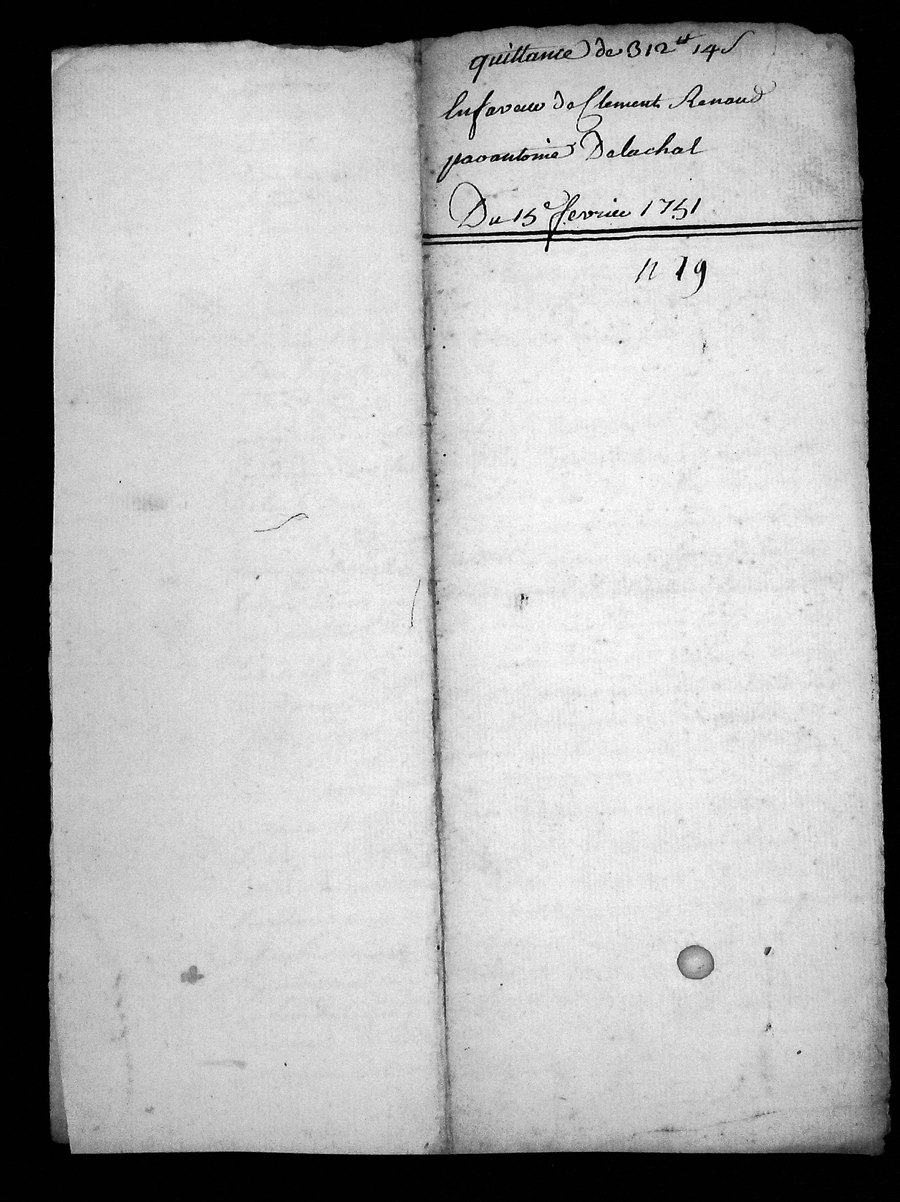 quittance de 312tt 14s
En faveur de Clement Renaud
par antoine Delachal
Du 15e fevrier 1751
n 19